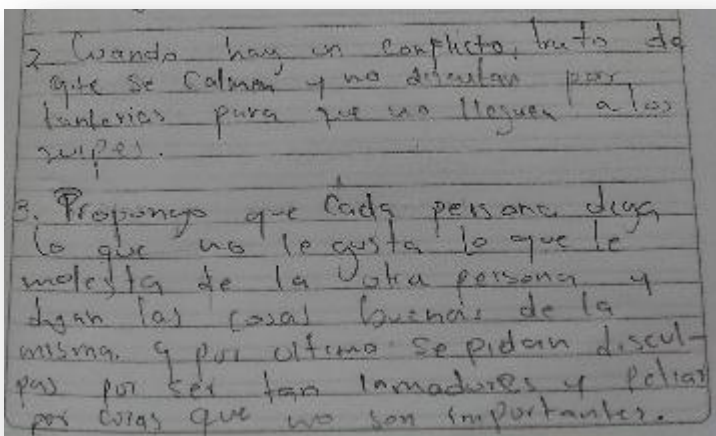 2 Cuando hay un conflicto, trato de
que se calmen y no discutan por
tonterias para que no lleguen a los
golpes.
3. Propongo que cada persona diga
lo que no le gusta lo que le
molesta de la otra persona y
digan las cosas buenas de la
misma. y por ultimo se pidan discul-
pas por ser tan inmadures y peliar
por cosas que no son importantes.